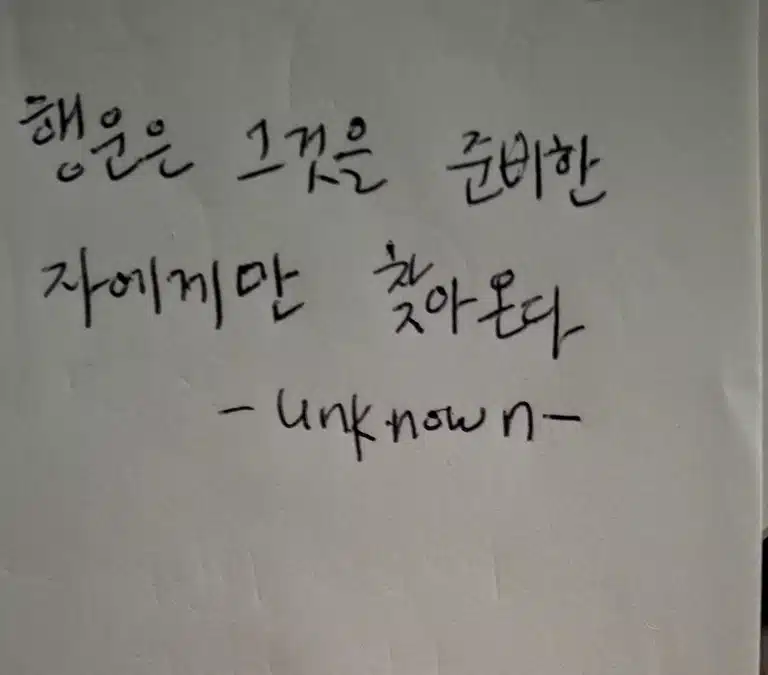 행운은 그것을 준비한
자에게만 찾아온다
-unknown-